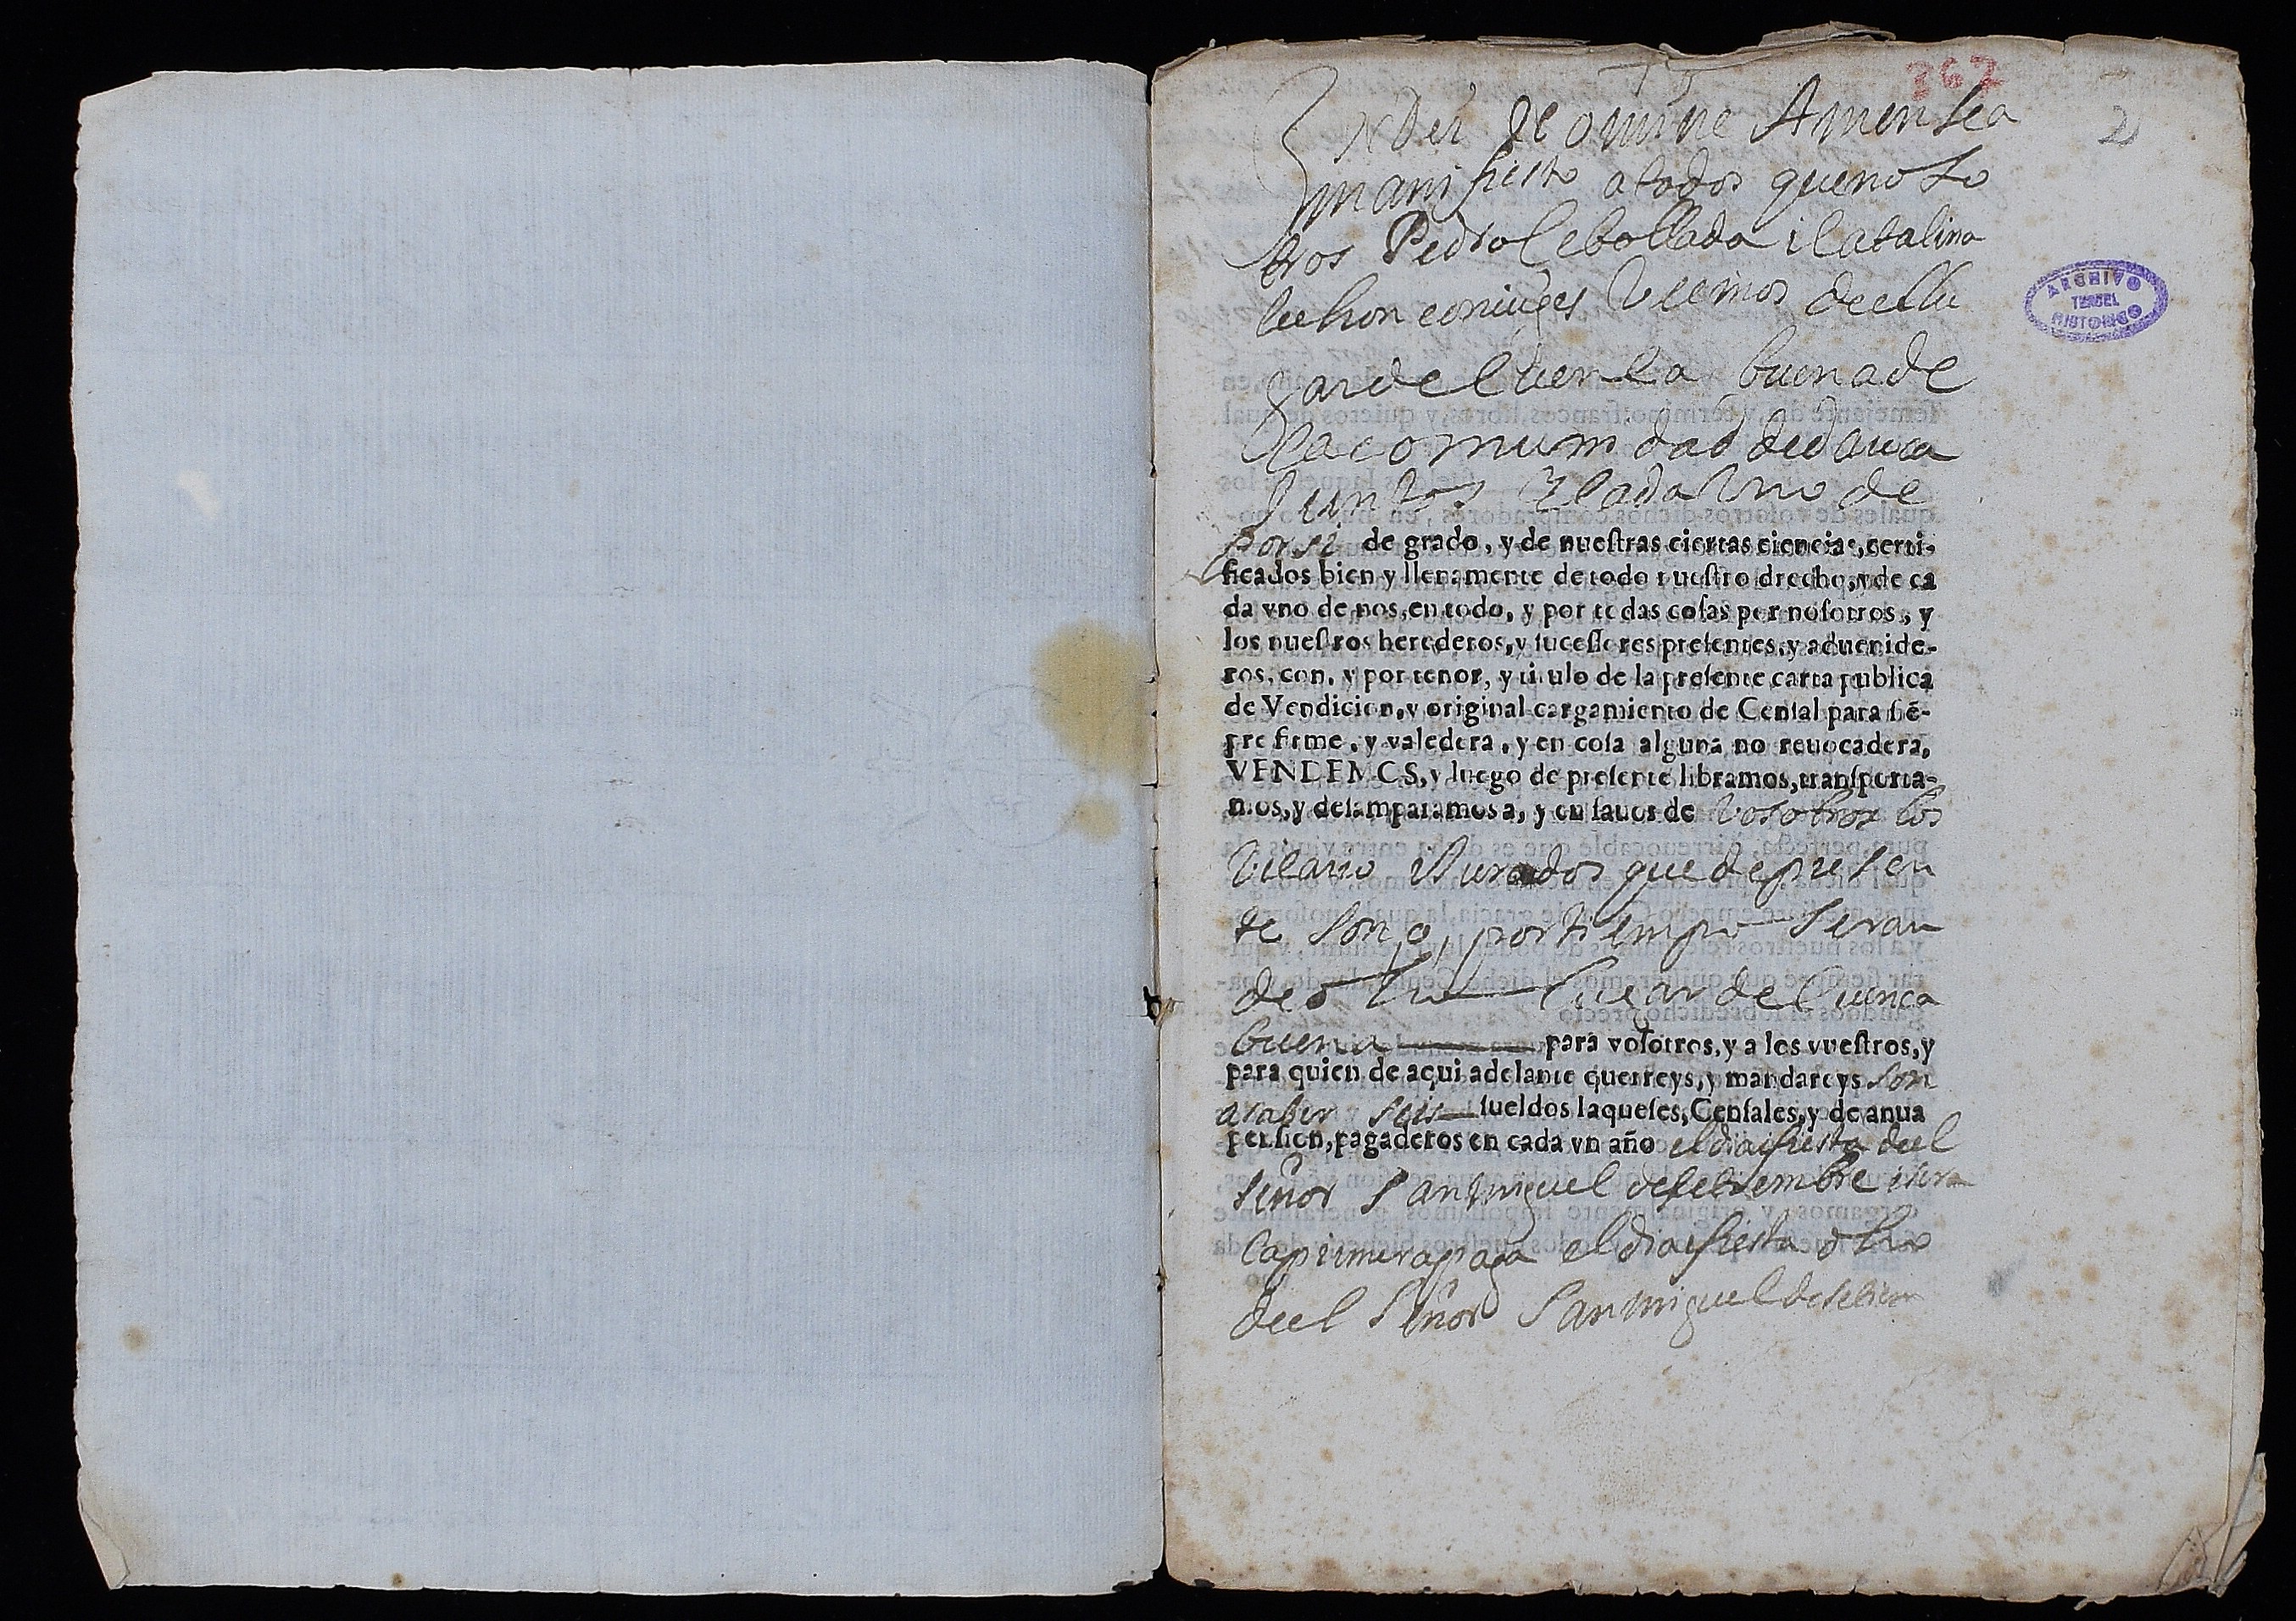 362
2
In Dei Nomine Amen sea
manifiesto a todos que noso
tros Pedro Cebollada i Catalina
coniuges Vecinos de el lu
gar de Cuenca buena de
la comunidad de daroca
Juntos i Cada Uno de
por si de grado, y de nueſtras ciertas ciencias, certi-
ficados bien y llenamente de todo nueſtro drecho, y de ca
da vno de nos, en todo, y por todas coſas por noſotros, y
los nueſtros herederos, y ſuceſſores preſentes, y aduenide-
ros, con, y por tenor, y titulo de la preſente carta publica
de Vendicion, y original cargamiento de Cenſal para ſiẽ-
pre firme, y valedera, y en coſa alguna no reuocadera,
VENDEMOS, y luego de preſente libramos, tranſporta-
mos, y deſamparamos a, y en fauor de Vosotros los
Vicario i Jurados que de presen
te son, o, por tiempo seran
de dho Lugar de Cuenca
buena para voſotros, y a los vueſtros, y
para quien de aqui adelante querreys, y mandareys son
a saber seis ſueldos Iaqueſes, Cenſales, y de anua
penſion, pagaderos en cada vn año el dia i fiesta de el
señor San Miguel de setiembre i sera
la primera paga el dia i fiesta dho
de el Señor San Miguel de setiem
ARCHIVO
TERUEL
HISTORICO